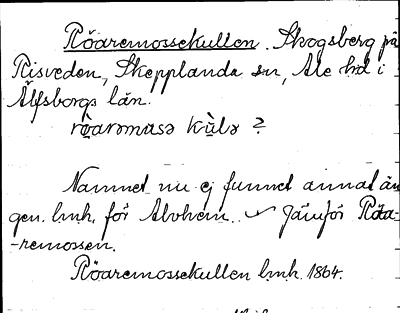 Röaremossekullen. Skogsberg på
Risveden, Skepplanda sn, Ale hd i
Älfsborgs län.
Namnet nu ej funnet annat än
gen. hmh. för Alvhem. Jämför Röa-
-remossen.
Röaremossekullen hmh. 1864.